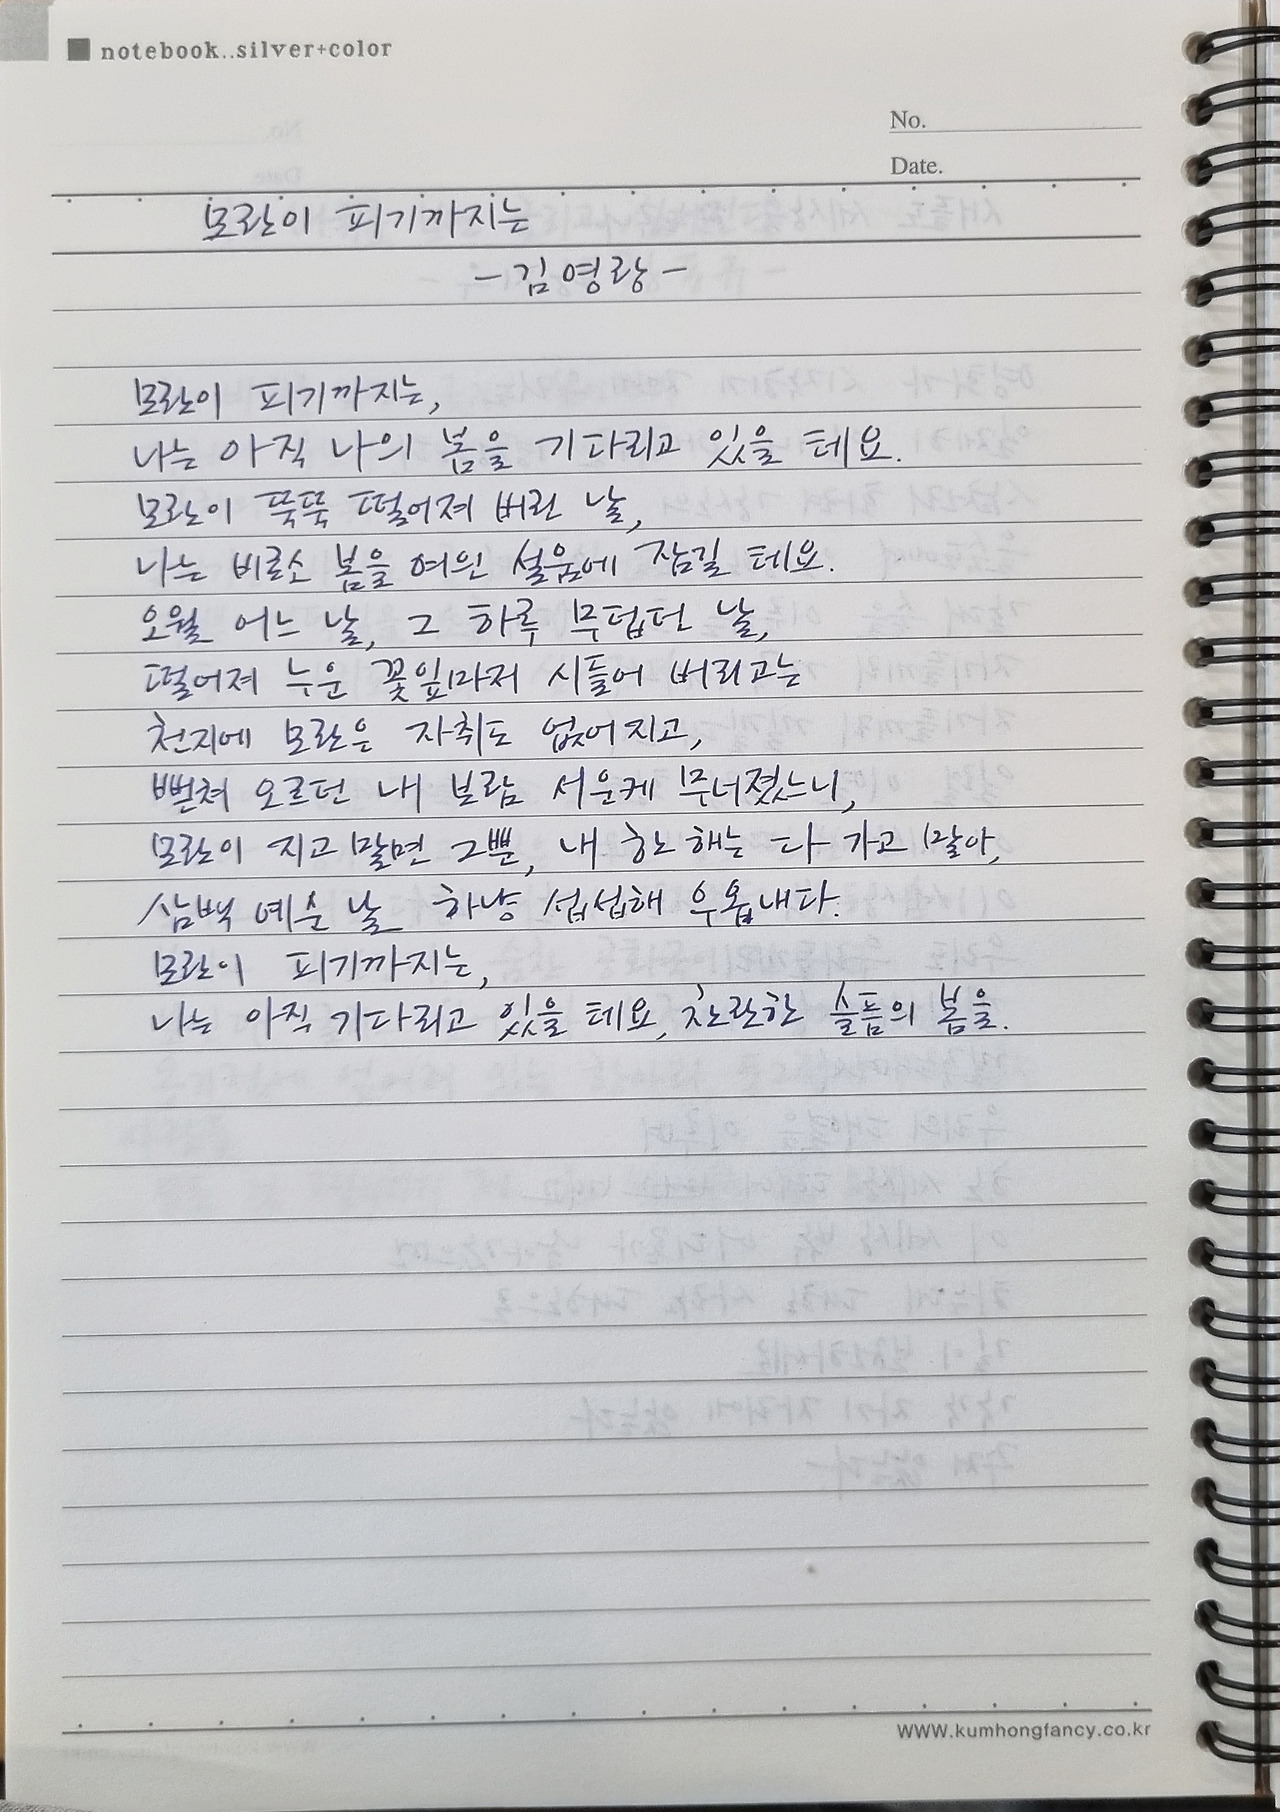 notebook..silver+color
No.
Date.
모란이 피기까지는
-김영랑-
모란이 피기까지는,
나는 아직 나의 봄을 기다리고 있을 테요.
모란이 뚝뚝 떨어져 버린 날,
나는 비로소 봄을 여읜 설움에 잠길 테요.
오월 어느 날, 그 하루 무덥던 날,
떨어져 누운 꽃잎마저 시들어 버리고는
천지에 모란은 자취도 없어지고,
뻗쳐 오르던 내 보람 서운케 무너졌느니,
모란이 지고 말면 그뿐, 내 한 해는 다 가고 말아,
삼백 예순 날 하냥 섭섭해 우옵내다.
모란이 피기까지는,
나는 아직 기다리고 있을 테요, 찬란한 슬픔의 봄을.
WWW.kumhongfancy.co.kr